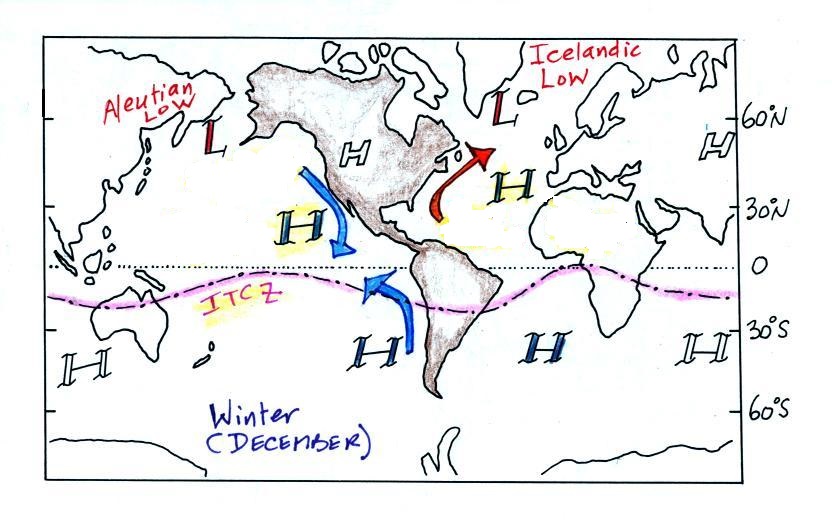 Icelandic
Low
Aleutian
LOW
L
L
60°N
H
H
H
30°N
H
0
ITCZ
30°S
H
H
H
H
60°S
Winter
(DECEMBER)